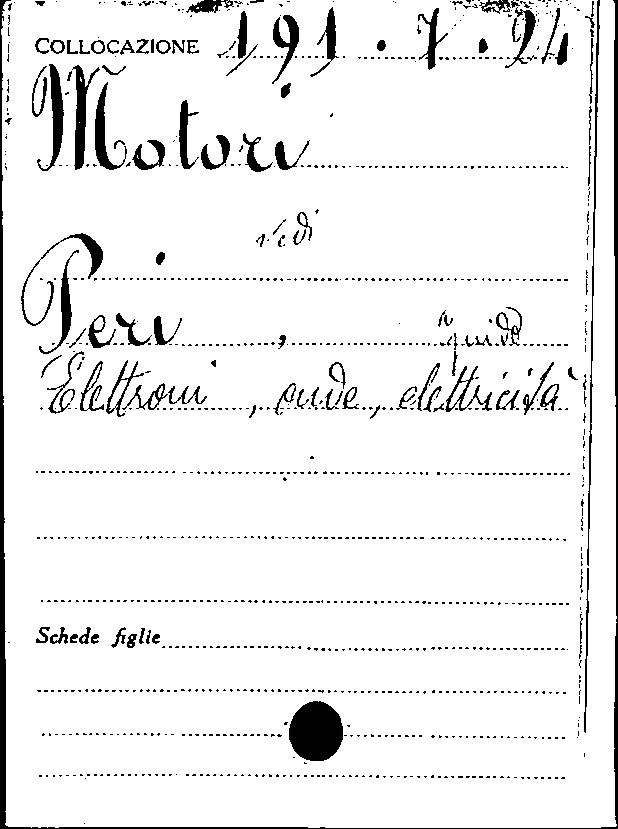 COLLOCAZIONE 191.7.24
Motori
vedi
Peri, guido
Elettroni, onde, elettricità
Schede figlie